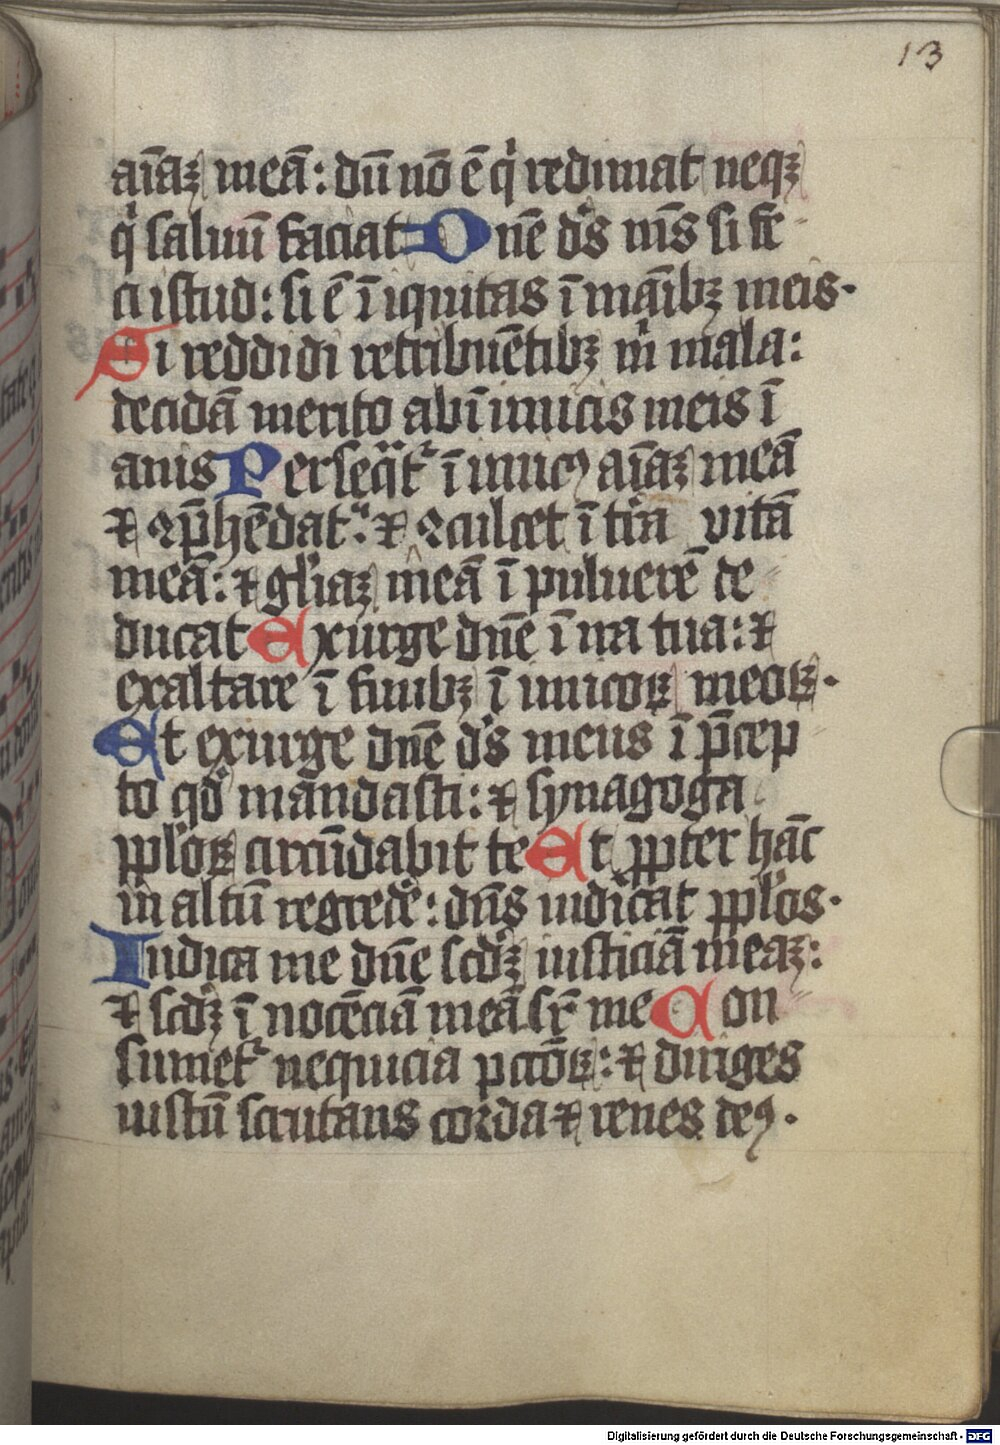 13
aīaꝫ meā: dū nō ē qͥ redimat neqꝫ
qͥ saluū faciat Dn̄e ds̄ ms̄ si fe
ci istud: si ē īiquitas ī manibꝫ meis·
Si reddidi retribuētibꝫ mͥ mala:
decidā merito ab īimicis meis ī
anis Perseqͣt᷑ īimicꝰ aīaꝫ meā
⁊ ꝯp̄hēdat: ⁊ ꝯculcet ī tr̄a vitā
meā: ⁊ gl̄iaꝫ meā ī puluerē de
ducat Exurge dn̄e ī ira tua: ⁊
exaltare ī finibꝫ īimicoꝝ meoꝝ·
Et exurge dn̄e ds̄ meus ī p̄cep
to qd̄ mandasti: ⁊ synagoga
ppl̄oꝝ circūdabit te Et ꝓpter hāc
in altū regredē: dn̄s iudicat ppl̄os·
Iudica me dn̄e scd̄ꝫ iusticiā meaꝫ:
⁊ scd̄ꝫ īnocēciā meā sr̄ me Con
sumet᷑ nequicia pctōꝝ: ⁊ diriges
iustū scrutans corda ⁊ renes deꝰ·
Digitalisierung gefördert durch die Deutsche Forschungsgemeinschaft - DFG